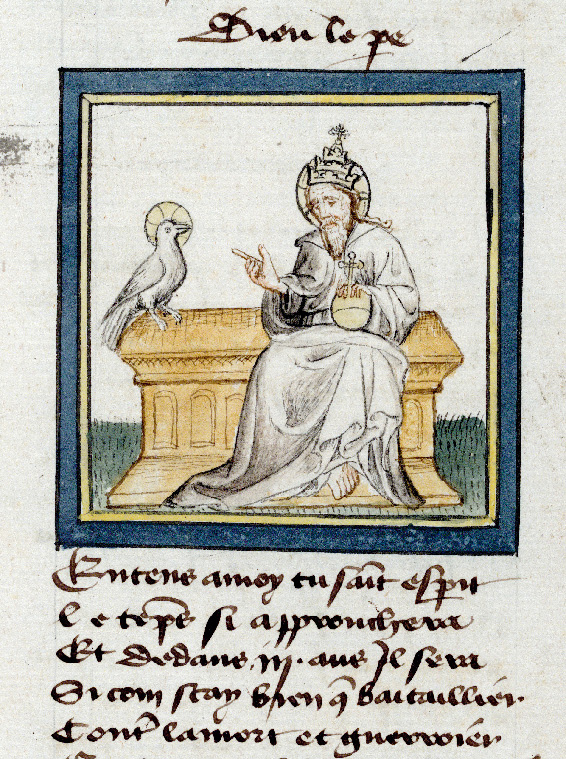 Dieu le pe
Entens a moy tu sait esprit
Le teps si approuchera
Et dedans iij. ans Il sera
Si com scay bien q bataillier
Cont la mort et guerroier